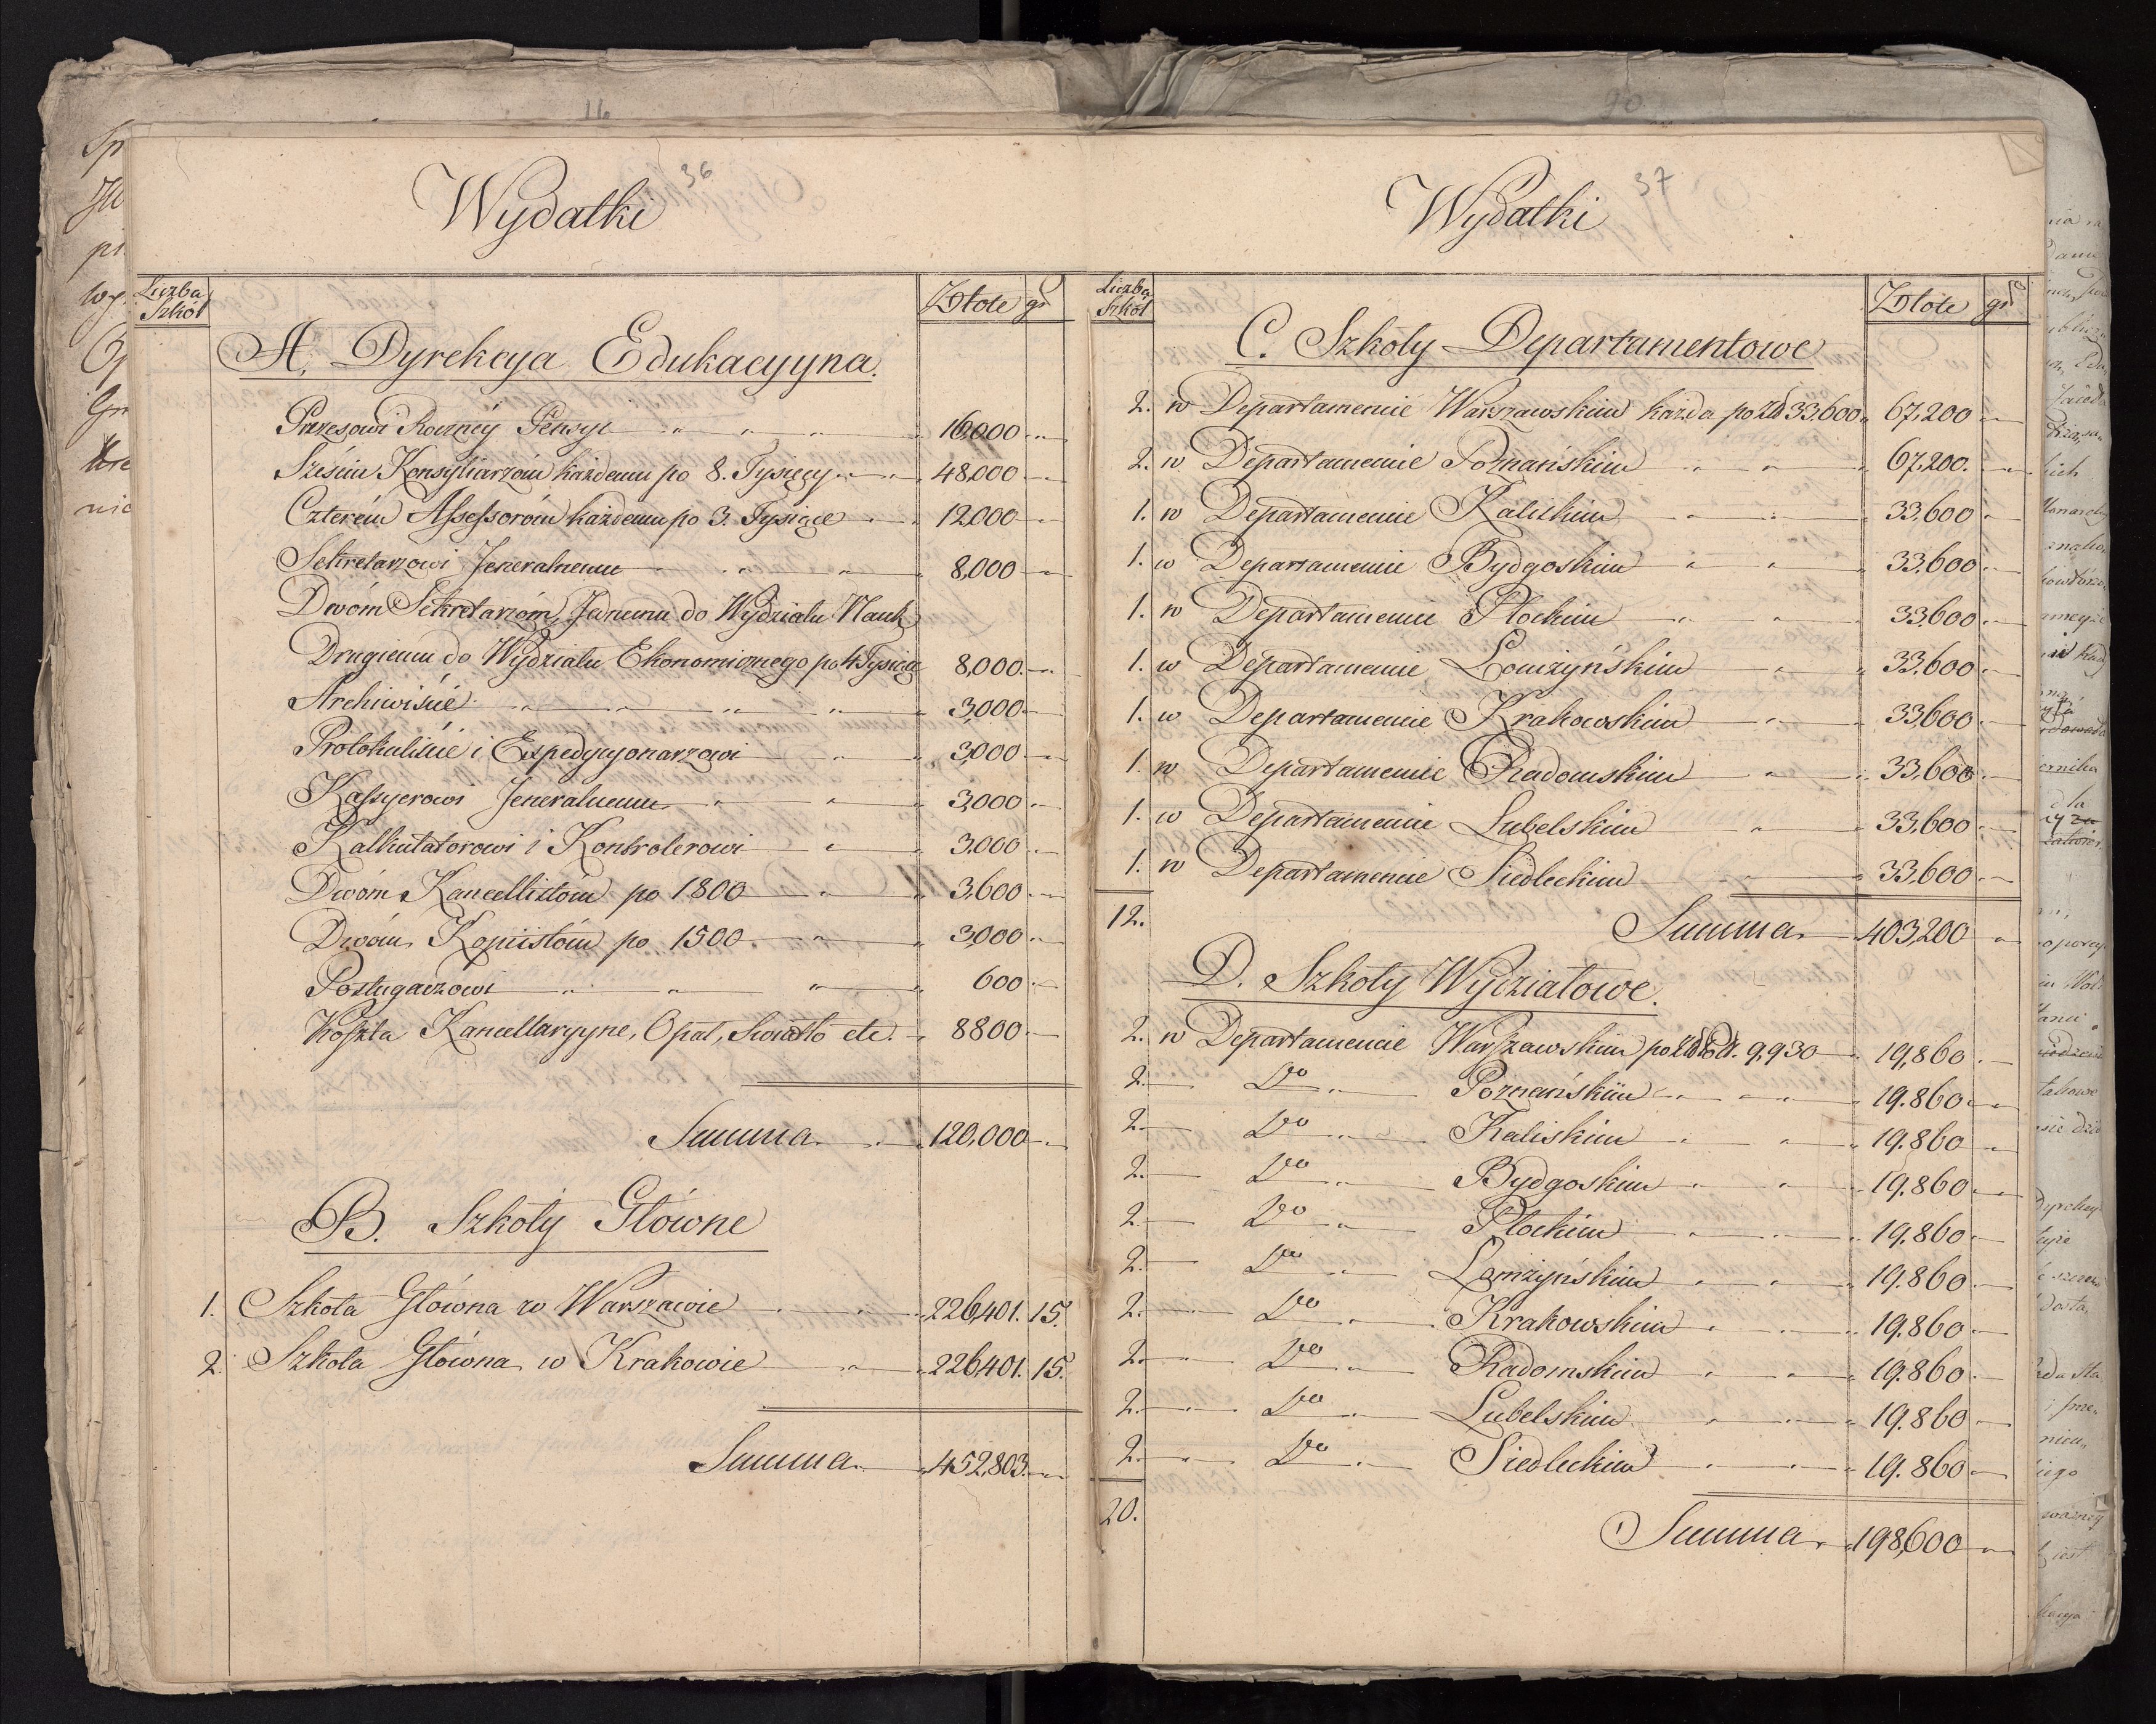 16
90
36
Wydatki
Liczba
Szkół
Złote gr
A. Dyrekcya Edukacyyna.
Prezesowi Roczney Pensyi 16,000
Sześciu Konsyliarzóm każdemu po 8. Tysięcy 48,000
Czteróm Assessoróm każdemu po 3. Tysiące 12000
Sekretarzowi Jeneralnemu 8,000
Dwóm Sekretarzóm, Jednemu do Wydziału Nauk
Drugiemu do Wydziału Ekonomicznego po 4 Tysiące 8,000.
Archiwiście 3,000
Protokuliście i Expedycyonarzowi 3,000
Kassyerowi Jeneralnemu 3,000
Kalkulatorowi i Kontrolerowi 3.000
Dwóm Kancellistóm po 1800 3,600
Dwóm Kopiistóm po 1500 3,000
Posługaczowi 600
Koszta Kancellaryyne, Opał, Swiatło etc. 8800
Summa 120,000
B. Szkoły Główne
1. Szkoła Główna w Warszawie 226,401. 15.
2. Szkoła Główna w Krakowie 226,401. 15.
Summa 452,803.
37
Wydatki
Liczba
Szkół
Złote gr
C. Szkoły Departamentowe
2. w Departamencie Warszawskim każda po Zł 33,600 67,200
2. w Departamencie Poznańskim 67,200.
1. w Departamencie Kaliskim 33,600
1. w Departamencie Bydgoskim 33,600
1. w Departamencie Płockim 33,600
1. w Departamencie Łomżyńskim 33,600
1. w Departamencie Krakowskim 33,600
1. w Departamencie Radomskim 33,600
1. w Departamencie Lubelskim 33,600
1. w Departamencie Siedleckim 33,600
12. Summa 403,200
D. Szkoły Wydziałowe.
2. w Departamencie Warszawskim po 9,930 19,860
2. Do Poznańskim 19.860
2. Do Kaliskim 19.860
2. Do Bydgoskim 19.860
2. Do Płockim 19.860
2. Do Łomżyńskim 19.860
2. Do Krakowskim 19.860
2. Do Radomskim 19.860
2. Do Lubelskim 19.860
2. Do Siedleckim 19.860
20.
Summa 198,600